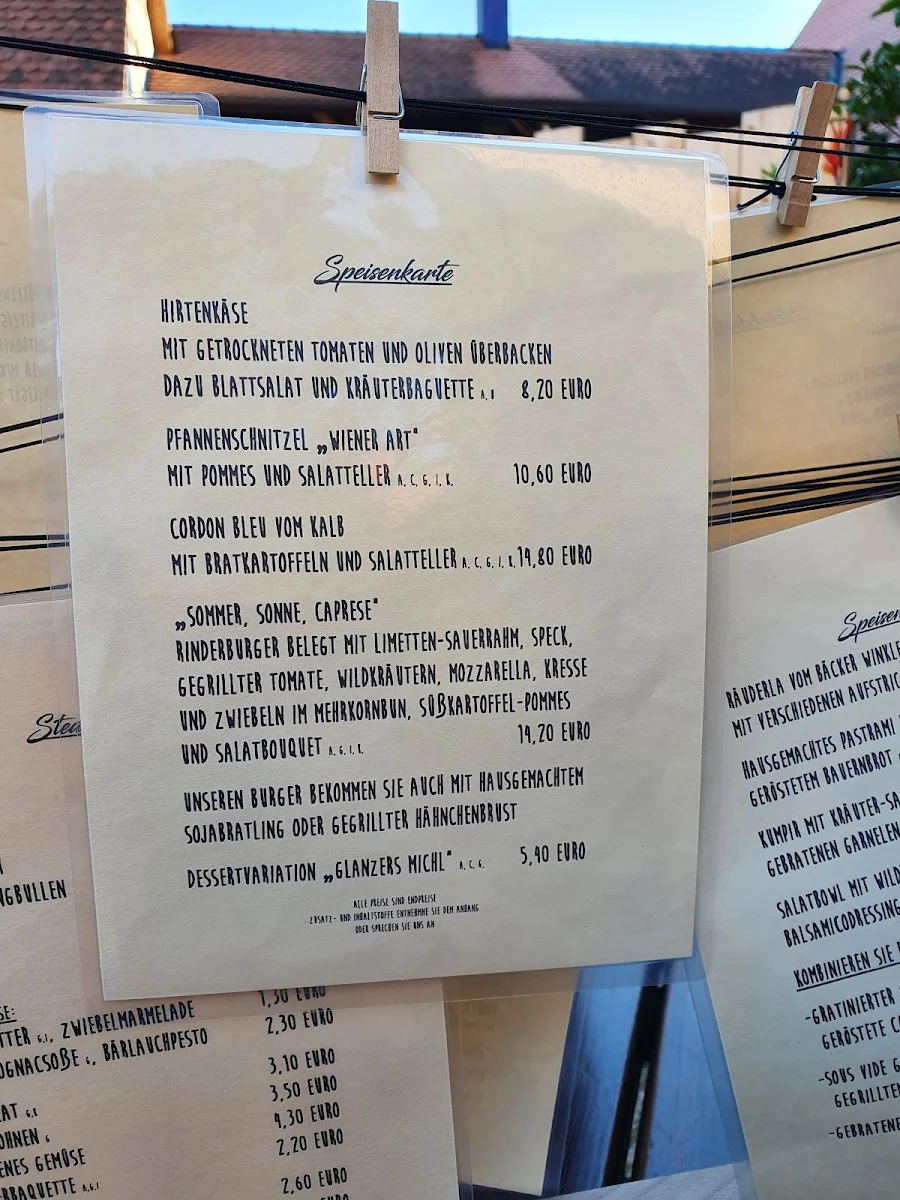 Speisenkarte
HIRTENKÄSE
MIT GETROCKNETEN TOMATEN UND OLIVEN ÜBERBACKEN
DAZU BLATTSALAT UND KRÄUTERBAGUETTE A, I 8,20 EURO
PFANNENSCHNITZEL „WIENER ART"
MIT POMMES UND SALATTELLER A, C, G, I, K, 10,60 EURO
CORDON BLEU VOM KALB
MIT BRATKARTOFFELN UND SALATTELLER A, C, G, I, K, 14,80 EURO
„SOMMER, SONNE, CAPRESE"
RINDERBURGER BELEGT MIT LIMETTEN-SAUERRAHM, SPECK,
GEGRILLTER TOMATE, WILDKRÄUTERN, MOZZARELLA, KRESSE
UND ZWIEBELN IM MEHRKORNBUN, SÜßKARTOFFEL-POMMES
UND SALATBOUQUET A, G, I, K, 14,20 EURO
UNSEREN BURGER BEKOMMEN SIE AUCH MIT HAUSGEMACHTEM
SOJABRATLING ODER GEGRILLTER HÄHNCHENBRUST
DESSERTVARIATION „GLANZERS MICHL" A, C, G, 5,40 EURO
ALLE PREISE SIND ENDPREISE
ZUSATZ- UND INHALTSTOFFE ENTNEHME SIE DEM ANHANG
ODER SPRECHEN SIE UNS AN
NGBULLEN
SE: 1,30 EURO
TTER G,I, ZWIEBELMARMELADE 2,30 EURO
OGNACSOßE G, BÄRLAUCHPESTO
3,10 EURO
3,50 EURO
AT G,K 4,30 EURO
OHNEN G 2,20 EURO
ENES GEMÜSE
RBAQUETTE A,G,I 2,60 EURO
Speisen
RÄUDERLA VOM BÄCKER WINKLE
MIT VERSCHIEDENEN AUFSTRIC
HAUSGEMACHTES PASTRAMI
GERÖSTETEM BAUERNBROT
KUMPIR MIT KRÄUTER-SA
GEBRATENEN GARNELEN
SALATBOWL MIT WILD
BALSAMICODRESSING
KOMBINIEREN SIE
-GRATINIERTER
GERÖSTETE C
-SOUS VIDE G
GEGRILLTE
-GEBRATENE